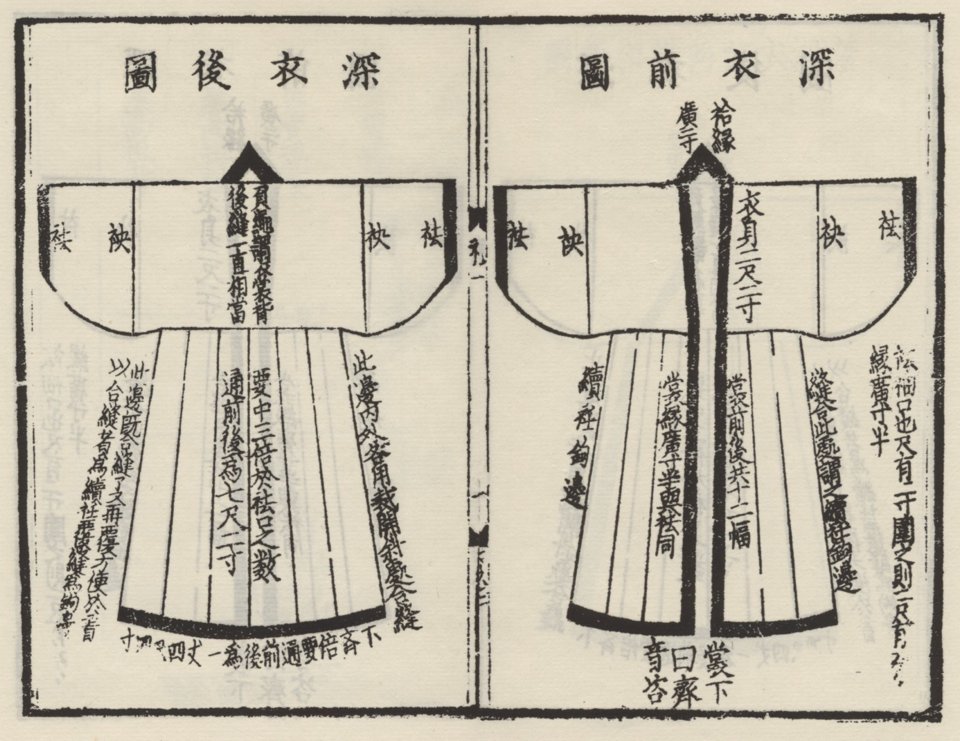 深衣前圖
袷緣
廣二寸
袪
袂
衣身二尺二寸
袂
袪
袪袖口也尺有二寸圍之則二尺有
緣廣寸半
縫合此處謂之續衽鉤邊
裳前後共十二幅
裳緣廣寸半與袪同
續衽鉤邊
裳下
曰齊
音咨
深衣後圖
袪
袂
負繩謂衣裳背
後縫一直相當
袂
袪
此邊內外各用裁開斜處合縫
要中三倍於袪口之數
通前後為七尺二寸
此邊既合縫了又再覆方便於著
以合縫者為續衽覆縫為鉤邊
下齊倍要通前後為一丈四尺四寸